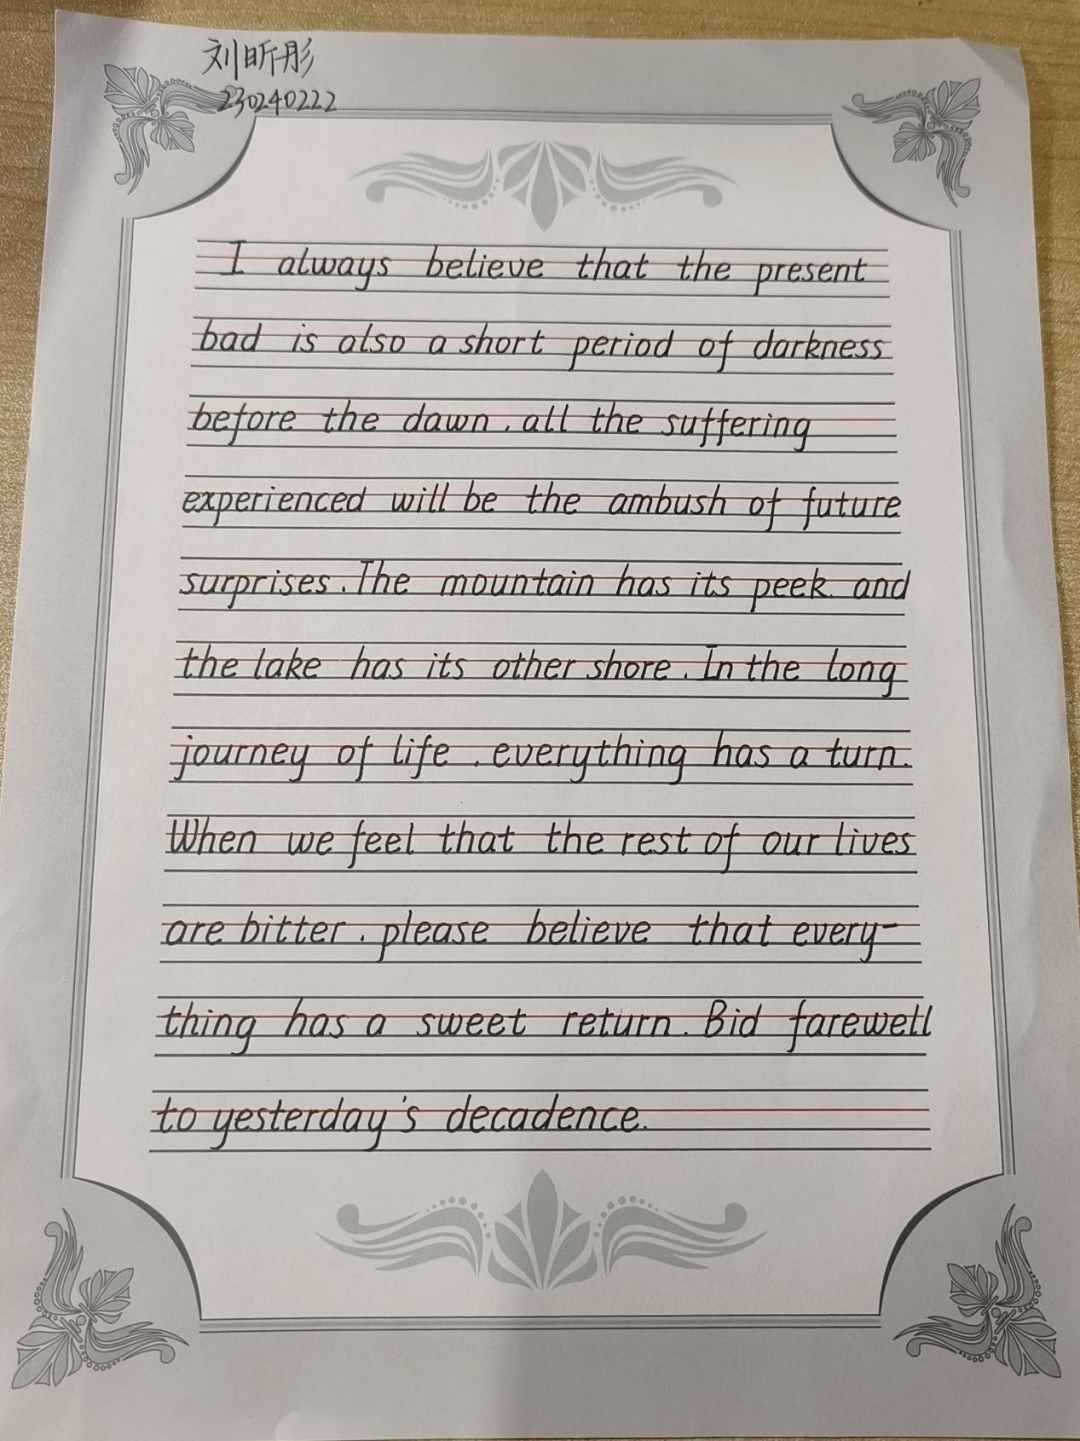 刘昕彤
230240222
I always believe that the present
bad is also a short period of darkness
before the dawn. all the suffering
experienced will be the ambush of future
surprises. The mountain has its peek and
the lake has its other shore. In the long
journey of life. everything has a turn.
When we feel that the rest of our lives
are bitter. please believe that every-
thing has a sweet return. Bid farewell
to yesterday's decadence.